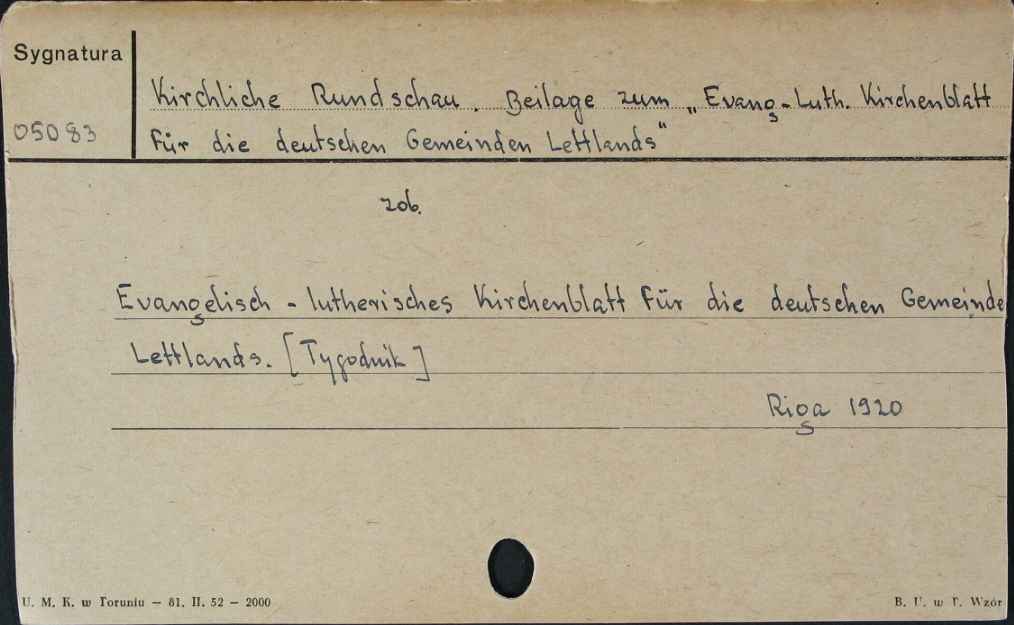 Sygnatura
05083
Kirchliche Rundschau. Beilage zum „Evang.-Luth. Kirchenblatt
für die deutschen Gemeinden Lettlands"
zob.
Evangelisch - lutherisches Kirchenblatt für die deutschen Gemeinde
Lettlands. [Tygodnik]
Riga 1920
U. M. K. w Toruniu — 81. II. 52 — 2000
B. U. w T. Wzór